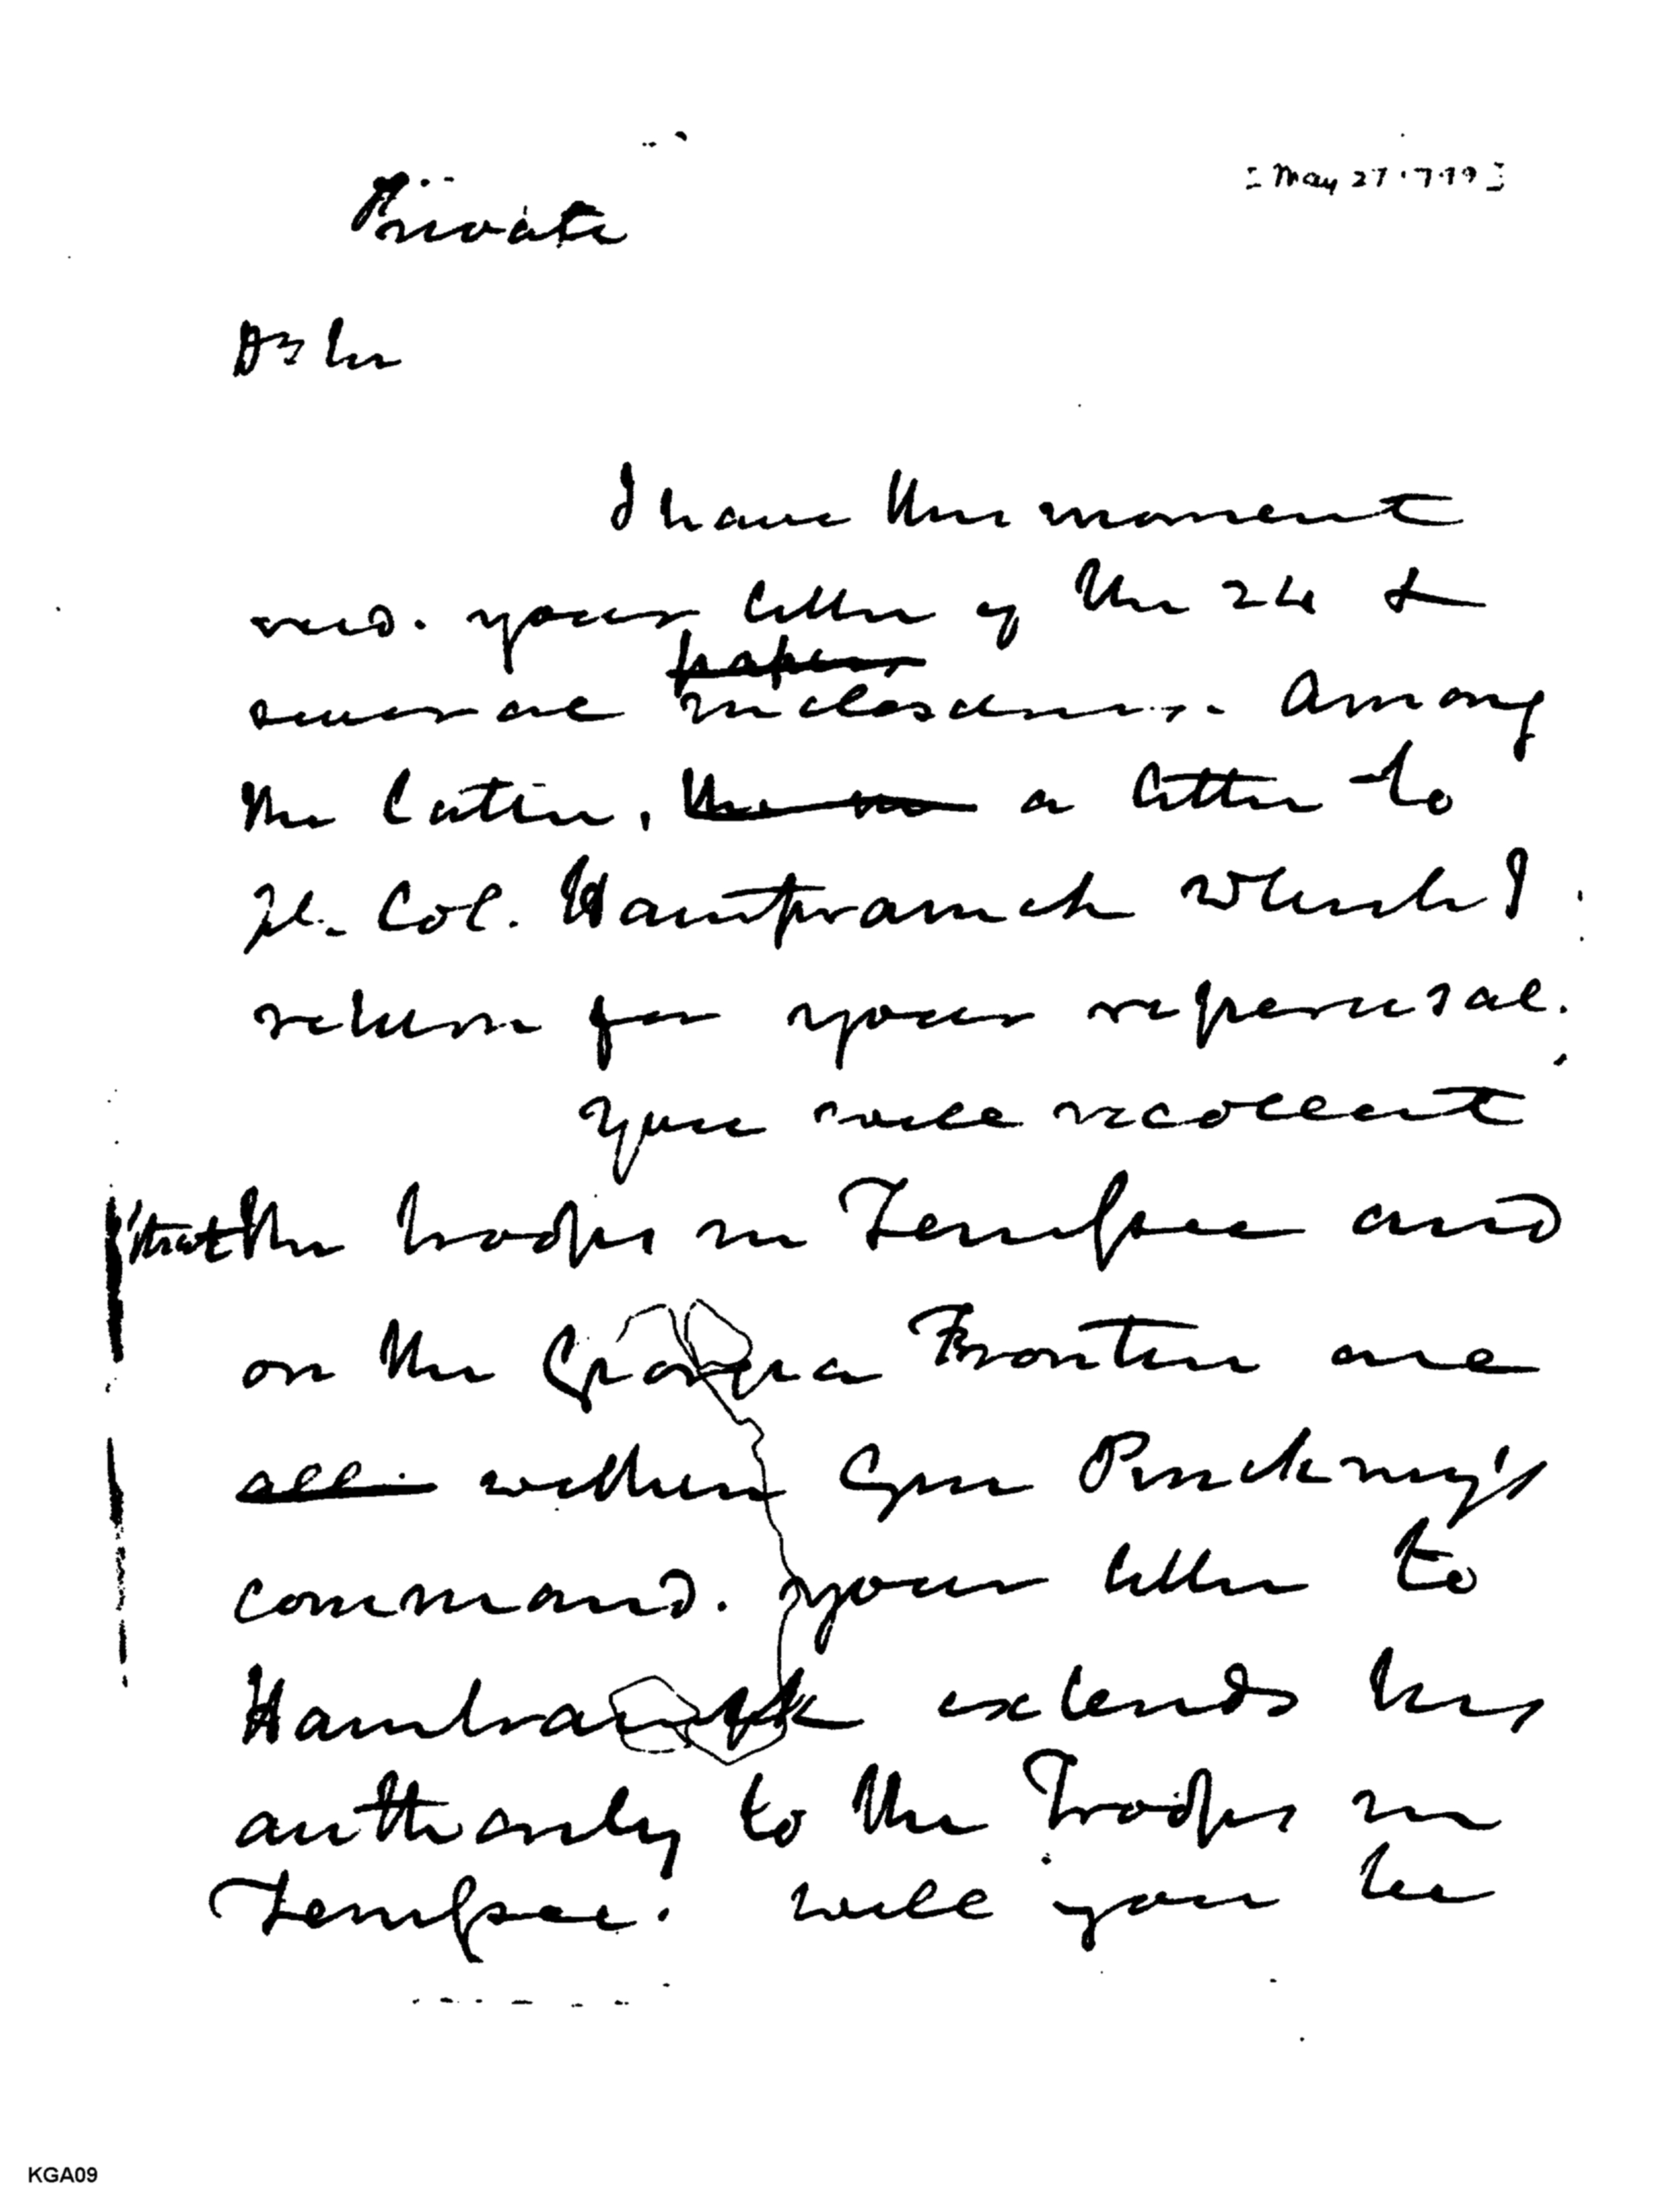 [May 27. 1799]
Private
Dr Sir
I have this moment
recd. your letter of the 24 &
papers
several inclosures. Among
the latter, a letter to
Lt. Col. Hamtramck which I
return for your reperusal.
You will recollect
that the troops in Tennessee and
on the Georgia Frontier are
all within Gen Pinckney's
command. Your letter to
Hamtramck extends his
authority to the Troops in
Tennessee. Will you be
KGA09